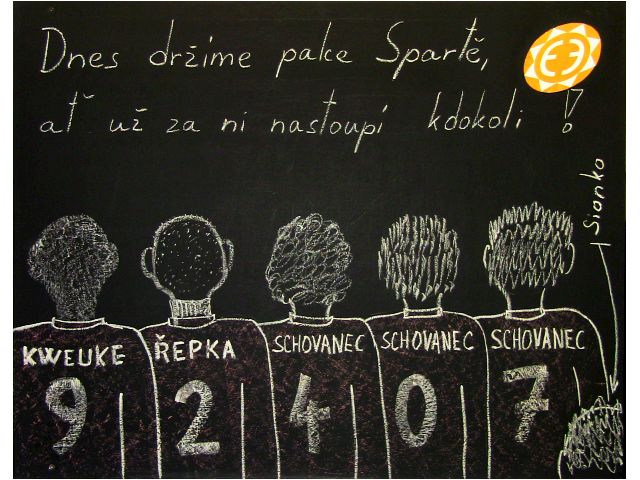 Dnes držíme palce Spartě,
ať už za ni nastoupí kdokoli!
Sionko
KWEUKE ŘEPKA SCHOVANEC SCHOVANEC SCHOVANEC
9 2 4 0 7